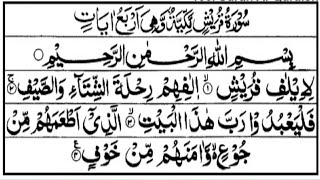 سُوْرَةُ قُرَيْشٍ مَّكِّيَّةٌ وَّهِيَ اَرْبَعُ اٰيَاتٍ
بِسْمِ اللّٰهِ الرَّحْمٰنِ الرَّحِيْمِ
لِاِيْلٰفِ قُرَيْشٍ ۙ۱ اٖلٰفِهِمْ رِحْلَةَ الشِّتَآءِ وَالصَّيْفِ ۚ۲
فَلْيَعْبُدُوْا رَبَّ هٰذَا الْبَيْتِ ۙ۳ الَّذِيْٓ اَطْعَمَهُمْ مِّنْ
جُوْعٍ ۙ وَّاٰمَنَهُمْ مِّنْ خَوْفٍ ۴